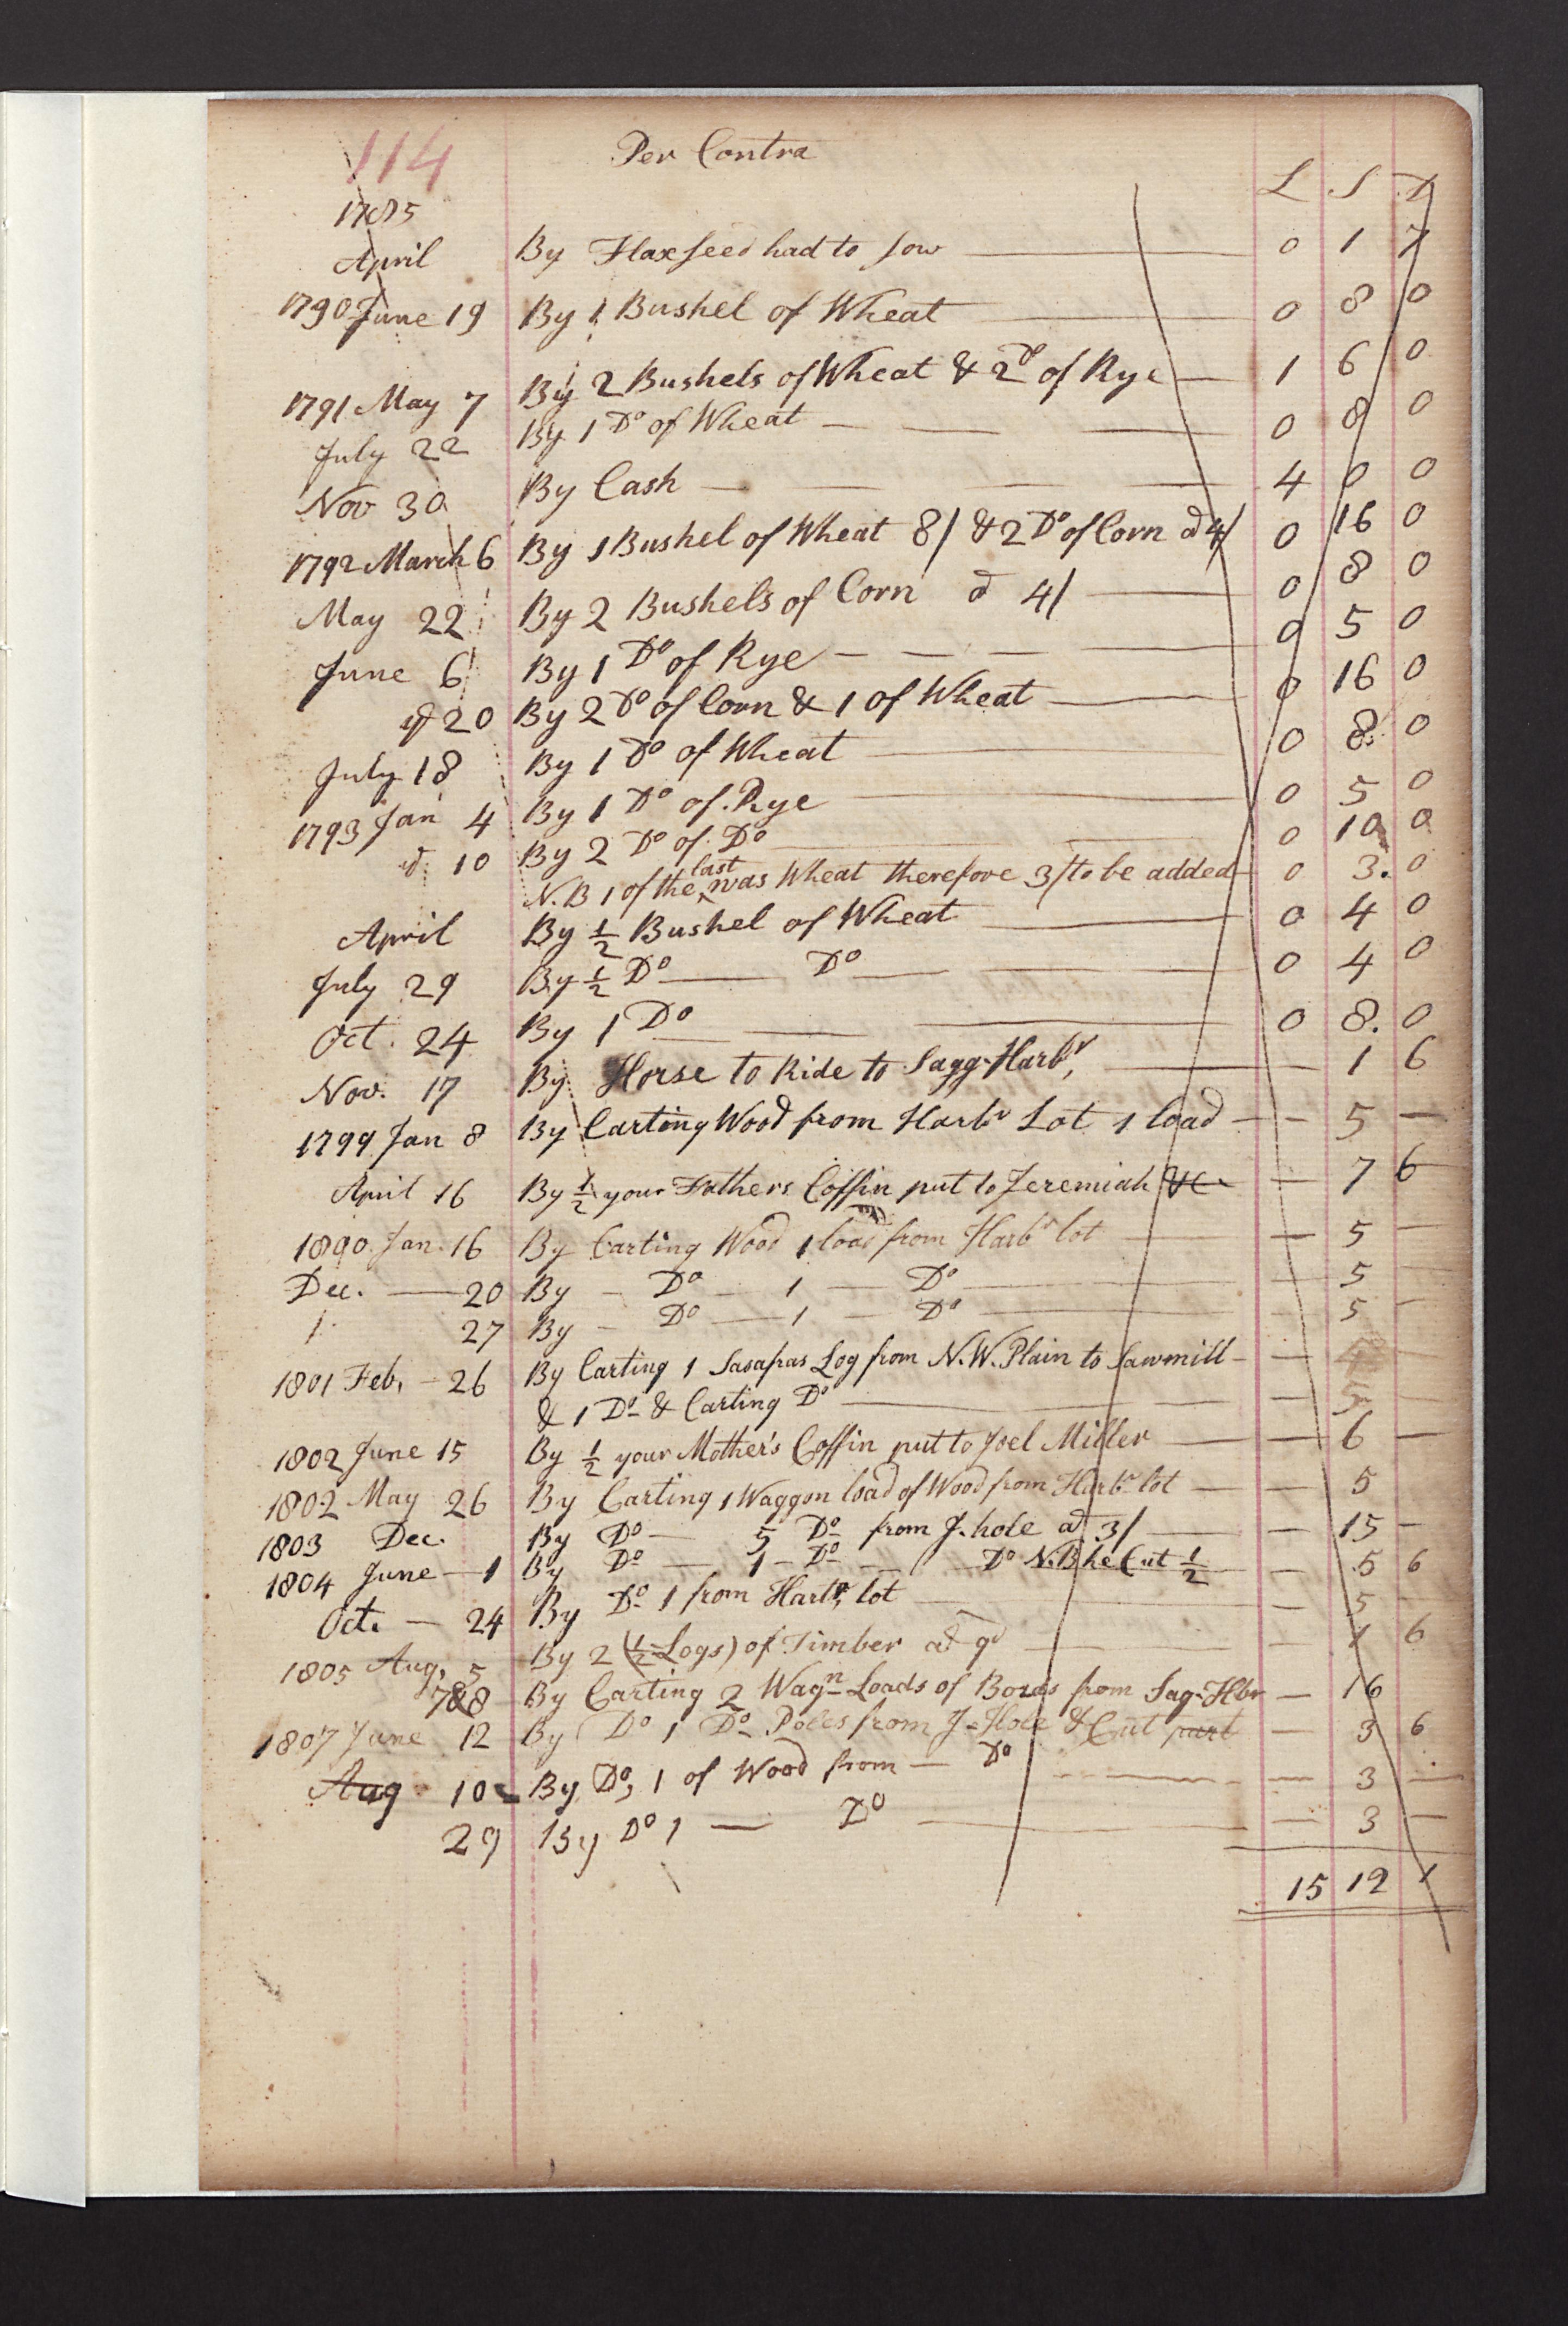 114 Per Contra
L S D
1785
April By Flaxseed had to sow 0 1 7
1790 June 19 By 1 Bushel of Wheat 0 8 0
1791 May 7 By 2 Bushels of Wheat & 2 Do of Rye 1 6 0
July 22 By 1 Do of Wheat 0 8 0
Nov 30 By Cash 4 0 0
1792 March 6 By 1 Bushel of Wheat 8/ & 2 Do of Corn @ 4/ 0 16 0
May 22 By 2 Bushels of Corn @ 4/ 0 8 0
June 6 By 1 Do of Rye 0 5 0
20 By 2 Do of Corn & 1 of Wheat 0 16 0
July 18 By 1 Do of Wheat 0 8 0
1793 Jan 4 By 1 Do of Rye 0 5 0
10 By 2 Do of Do 0 10 0
N.B 1 of the last was Wheat therefore 3/ to be added 0 3 0
April By 1/2 Bushel of Wheat 0 4 0
July 29 By 1/2 Do Do 0 4 0
Oct. 24 By 1 Do 0 8 0
Nov. 17 By Horse to Ride to Sagg-Harbr, 1 6
1799 Jan 8 By Carting Wood from Harbr Lot 1 load 5
April 16 By 1/2 your Fathers Coffin put to Jeremiah &c 7 6
1800 Jan. 16 By Carting Wood 1 load from Harbr lot 5
Dec. 20 By Do 1 Do 5
27 By Do 1 Do 5
1801 Feb. 26 By Carting 1 Sasafras Log from N.W. Plain to Sawmill
& 1 Do & Carting Do 5
1802 June 15 By 1/2 your Mother's Coffin put to Joel Miller 6
1802 May 26 By Carting 1 Waggon load of Wood from Harbr lot 5
1803 Dec. By Do 5 Do from J. hole @ 3/ 15
1804 June 1 By Do 1 Do Do N.B he Cut 1/2 5 6
Oct. 24 By Do 1 from Harbr, lot 5
1805 Aug, 5 By 2 (1/2 Logs) of Timber at 9d 1 6
7&8 By Carting 2 Wagn Loads of Bords from Sag-Hbr 16
1807 June 12 By Do 1 Do Poles from J-Hole & Cut part 3 6
Aug 10 By Do, 1 of Wood from Do 3
29 By Do 1 Do 3
15 12 1